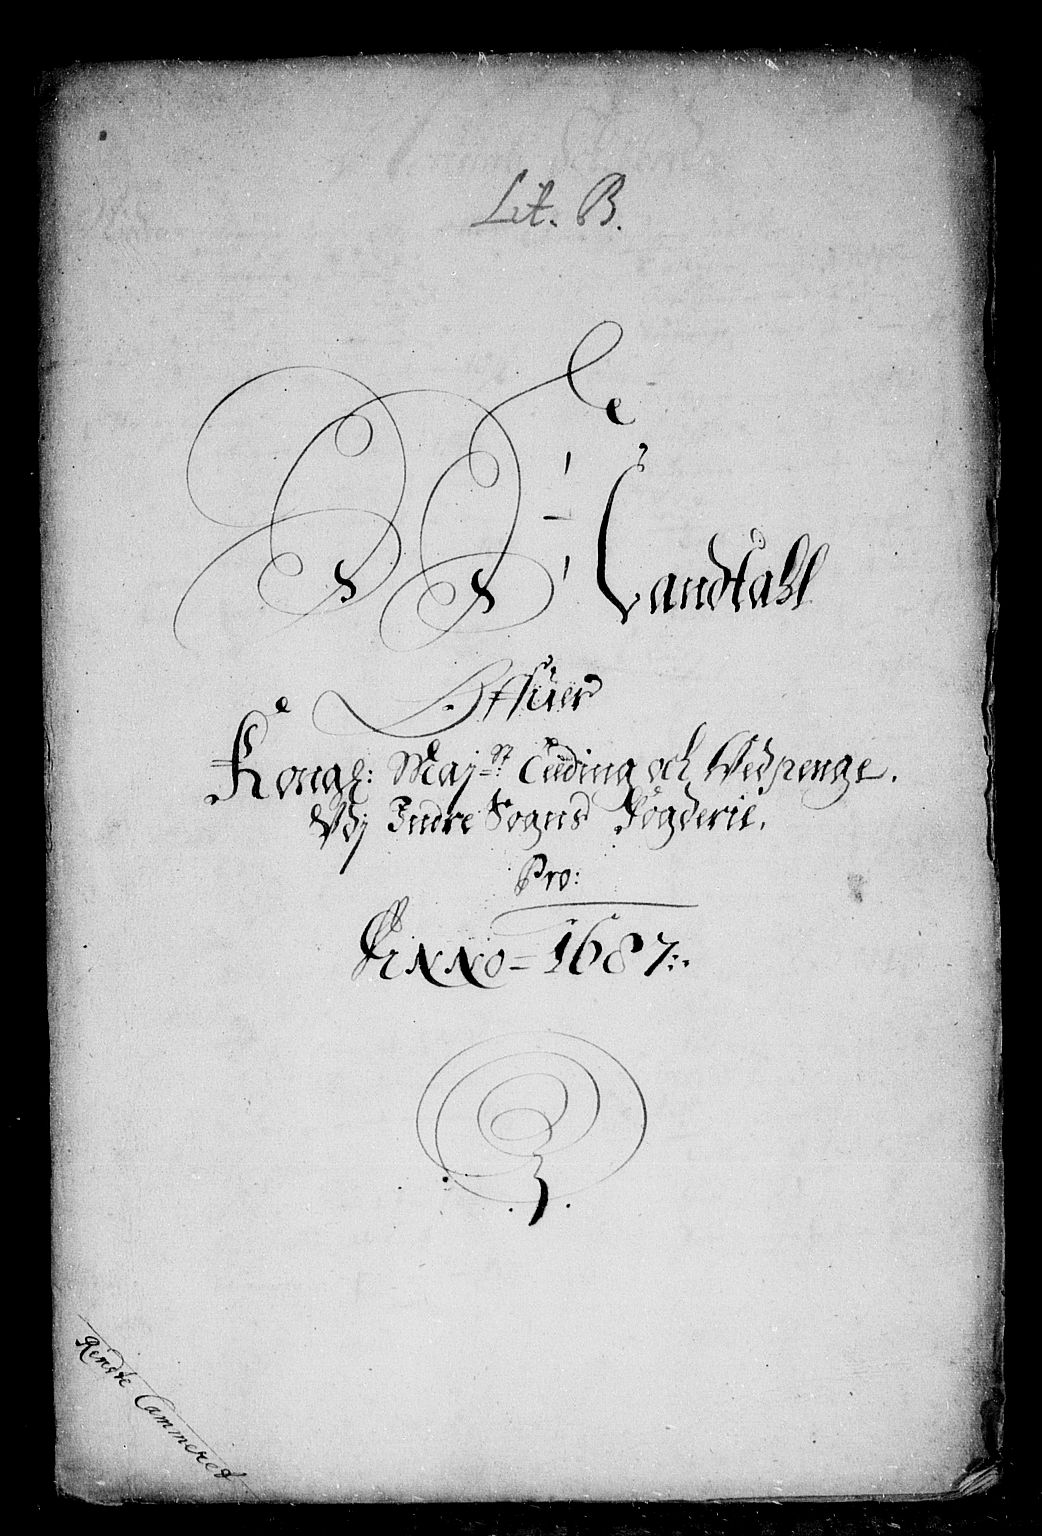 Lit. B.
N N Landtahl
Offuer
Kongl: Maj:st Leding och Wedpenge.
Vdj Indre Sogns Fogderie.
Pro:
Anno = 1687:.
Rendte Cammeret